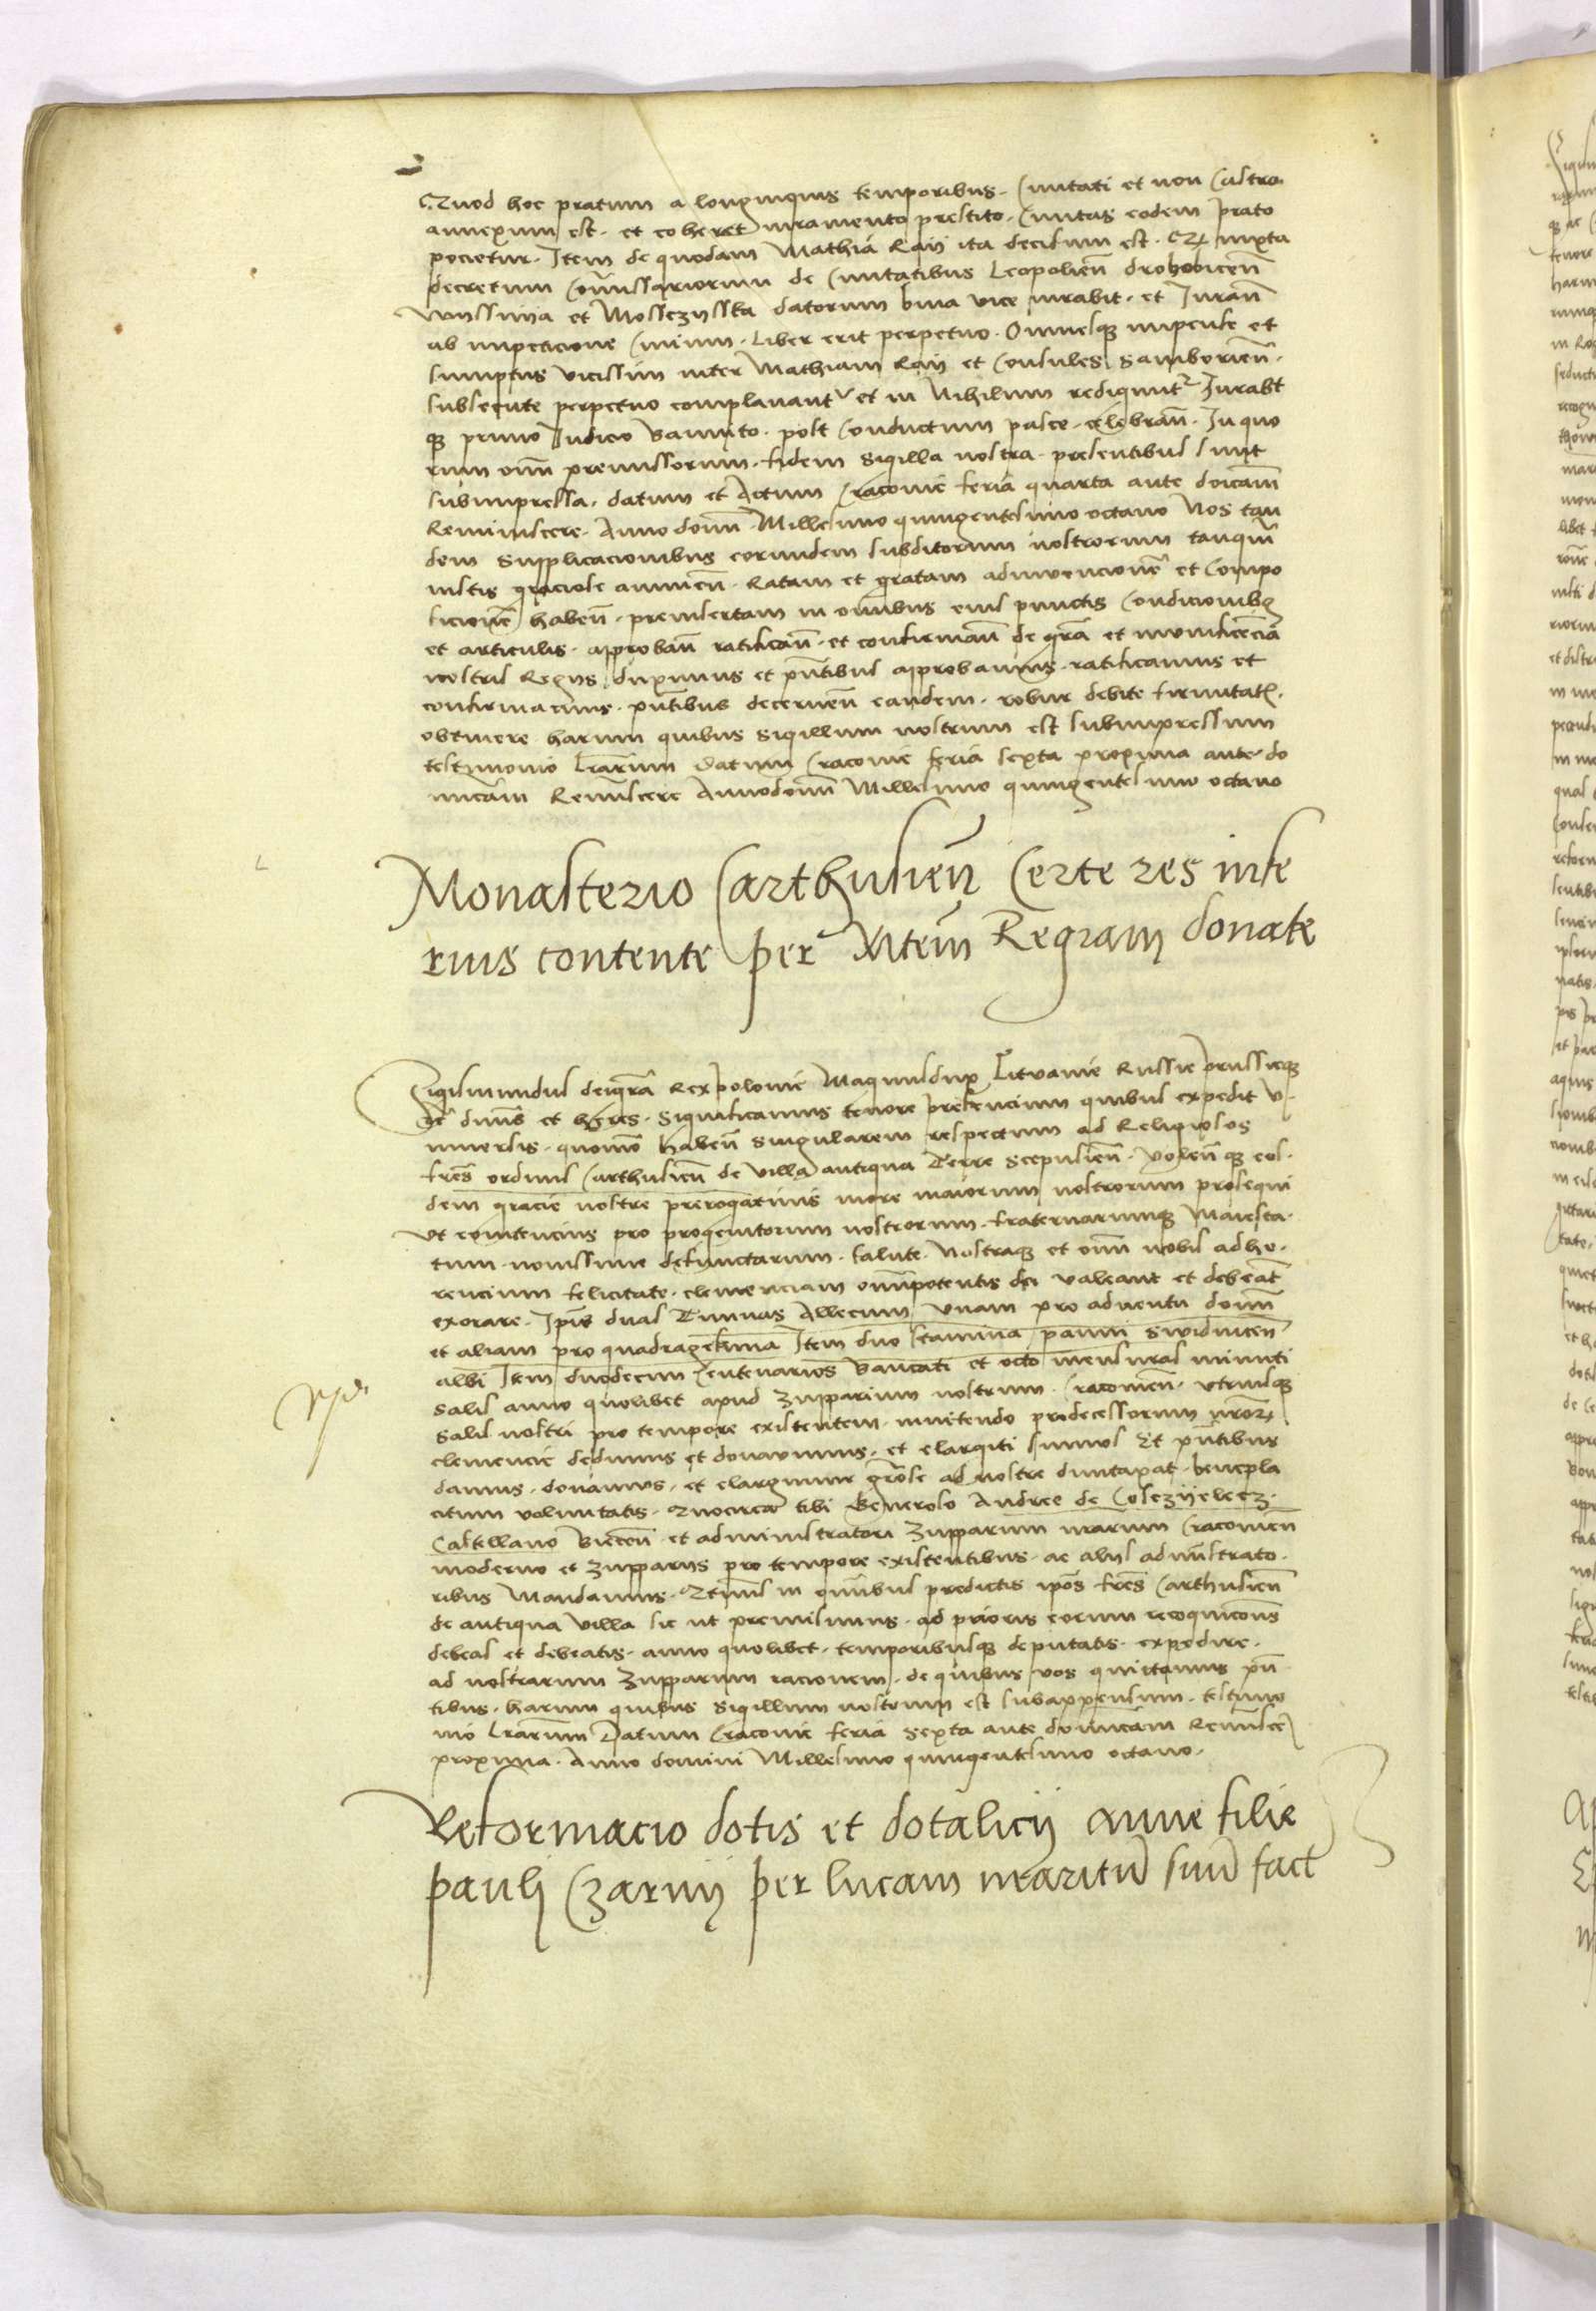 Quod hoc pratum a longinquis temporibus. Civitati et non Castro
annexum est. et coheret iuramento prestito. Civitas eodem prato
pocietur. Item de quodam Mathia Raij ita decisum est. Qz iuxta
decretum Comissariorum de Civitatibus Leopolien̄ drohobicen̄
Vyssnija et Mosszyska datorum bina vice iurabit. et Iuran̄
ab impeticione Civium. Liber erit perpetuo. Omnesqz impense et
sumptus vicissim inter Mathiam Raij et Consules Samborien̄.
subsecute perpetuo complanant᷑ et in Nihilum rediguntᷣ Jurabt
qz primo Iudico bannito. post Conductum pasce. celebran̄. In quo
rum om̄ premissorum. fidem sigilla nostra. presentibus sunt
subimpressa. datum et Actum Cracovie feria quarta ante doīcam
Reminiscere. Anno domī Millesimo quingentesimo octavo Nos tan
dem supplicacionibus eorundem subditorum nostrorum tanqm̄
iustis graciose annuen̄. Ratam et gratam adinvencionē et Compo
sicionē haben̄. preinsertam in omībus eius punctis Condicionibꝫ
et articulis. approban̄ ratifican̄. et confirman̄ de grā et munificēcia
nostris Regijs duximus et pn̄tibus approbavimus. ratificamus et
confirmamus. pn̄tibus decernen̄ eandem. robur debite firmitatꝭ.
obtinere harum quibus sigillum nostrum est subimpressum
testimonio Lrārum Datum Cracovie feria sexta proxima ante do
nicam̄ Remīscere Anno domī Millesimo quingentesimo octavo
Monasterio Carthusien̄ Certe res infe
rius contente per Mtem̄ Regiam donate
Sigismundus dei grā Rex polonie Magnus dux Lituanie Russie prussieqz
ꝛc̄ dn̄us et heres. Significamus tenore presencium quibus expedit v
niversis. quomō haben̄ singularem respectum ad Religiosos
frēs ordinis Carthusien̄ de villa antiqua Terre Scepusien̄. volen̄qz eos
dem gracie nostre prerogativis more maiorum nostrorum prosequi
Ut convencius pro progenitorum nostrorum. fraternarumqz Maiesta
tum novissime defunctarum. salute. Nostraqz et om̄ nobis adhe
rencium felicitate. clemenciam omnipotentis dei valeant et debeāt
exorare. Ip̄is duas Tunnas Allecum vnam pro adventu domī
et aliam pro quadragesima Item duo stamina panni Swidnicen̄
albi Item duodecim Centenarios bancati et octo mensuras minuti
Salis anno quolibet apud Zupparium nostrum. Cracovien̄. utriusqz
Salis nostri pro tempore existentem. imitendo predecessorum nrōrꝫ
clemencie dedimus et donavimus. et elargiti sumus Et pn̄tibus
damus. donamus. et elargimur grōse ad nostre duntaxat. benepla
citum voluntatis. Quocirca tibi Generoso Andree de Coszyelecz.
Castellano Biecen̄ et administratori Zupparum nrārum Cracovien̄
moderno et Zupparijs pro tempore existentibus. ac alijs admīstrato
ribus Mandamus. Qtinus in omībus predictis ip̄os frēs Carthusien̄
de antiqua villa sic ut premisimus. ad prioris eorum recognicōns
debeas et debeatis. anno quolibet. temporibusqz deputatis. expedire.
ad nostrarum Zupparum racionem. de quibus vos quittamus pn̄
tibus. harum quibus sigillum nostrum est subappensum. testimo
nio Lrārum Datum Cracovie feria sexta ante dominicam Remīscē
proxima. Anno domini Millesimo quingentesimo octavo.
Reformacio dotis et dotalicij Anne filie
pauli Czarnij per lucam maritū suū fact